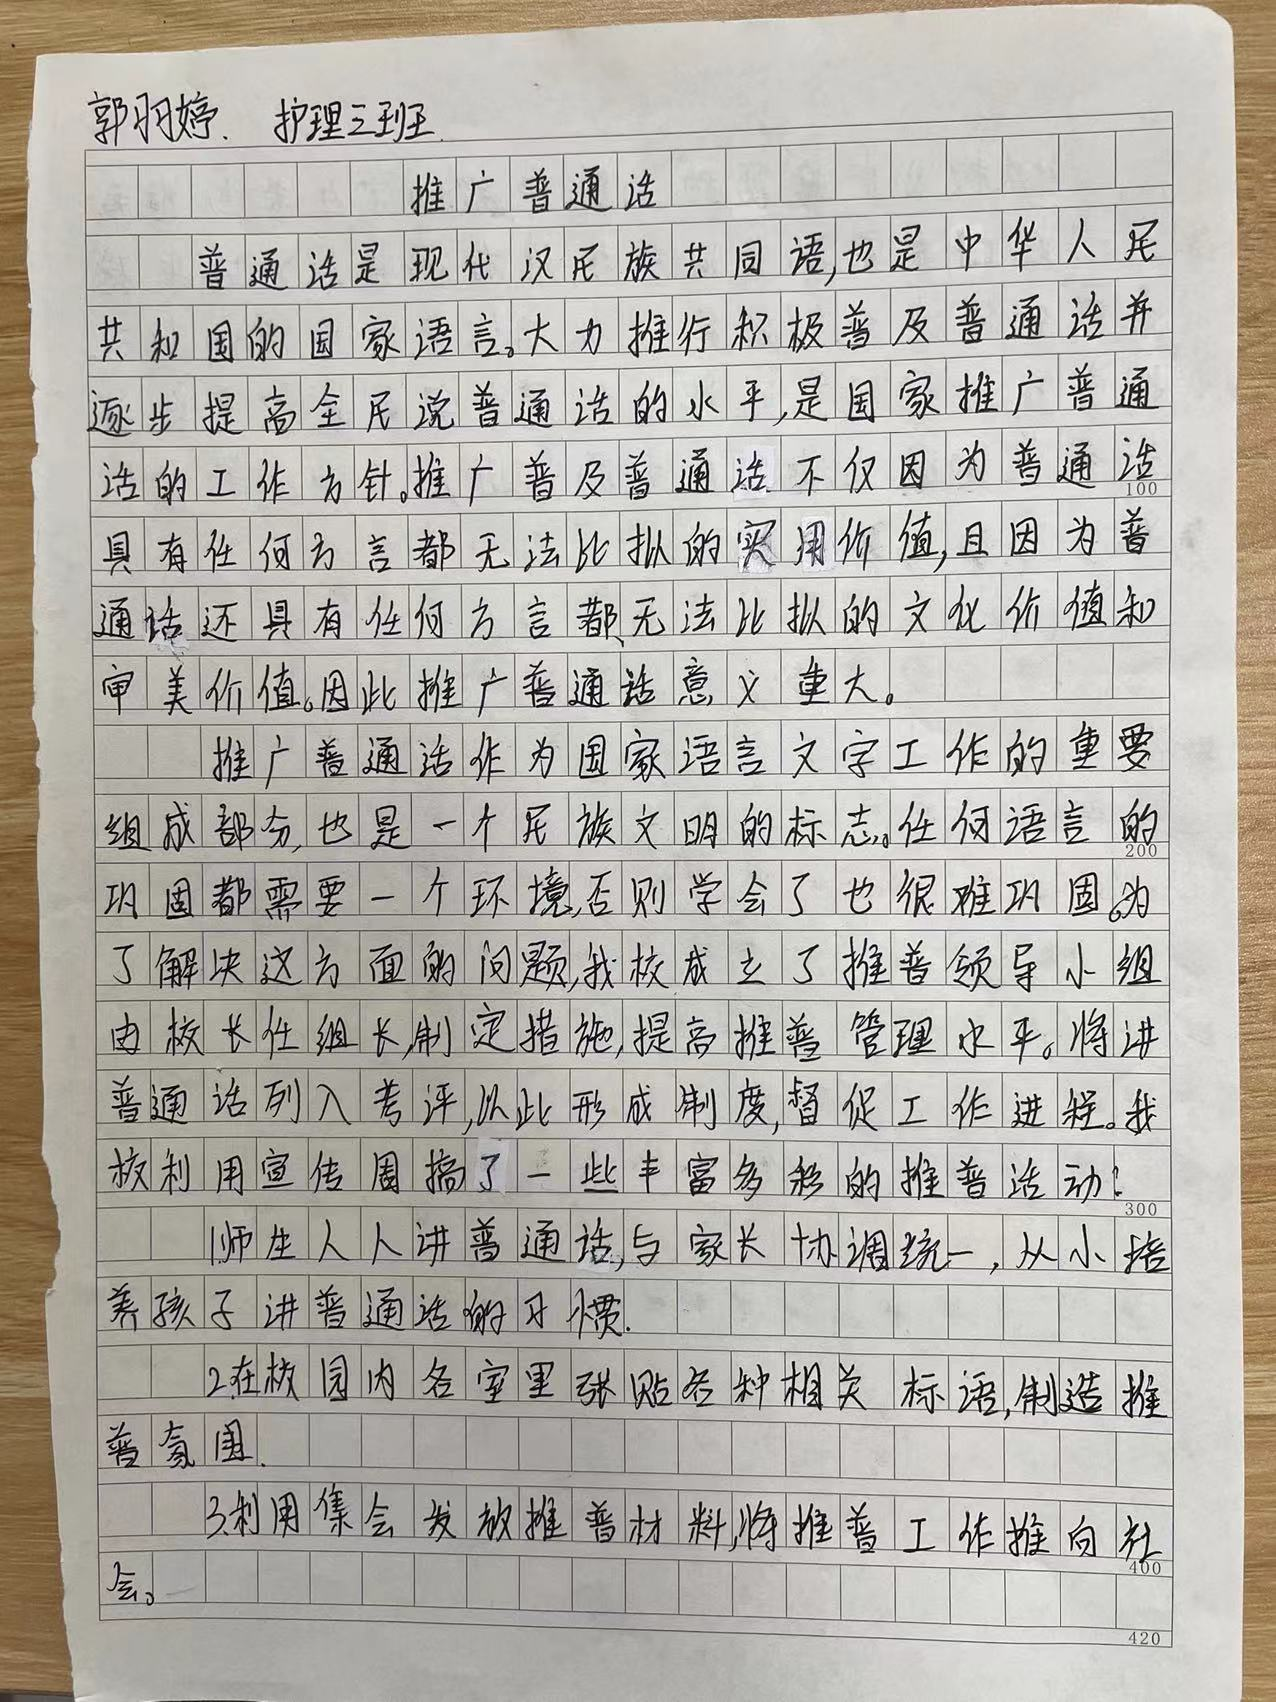 郭羽婷. 护理三班.
推广普通话
普通话是现代汉民族共同语,也是中华人民
共和国的国家语言。大力推行积极普及普通话并
逐步提高全民说普通话的水平,是国家推广普通
话的工作方针。推广普及普通话不仅因为普通话
100
具有任何方言都无法比拟的实用价值,且因为普
通话还具有任何方言都无法比拟的文化价值和
审美价值。因此推广普通话意义重大。
推广普通话作为国家语言文字工作的重要
组成部分,也是一个民族文明的标志。任何语言的
200
巩固都需要一个环境,否则学会了也很难巩固。为
了解决这方面的问题,我校成立了推普领导小组
由校长任组长,制定措施,提高推普管理水平。将讲
普通话列入考评,以此形成制度,督促工作进程。我
校利用宣传周搞了一些丰富多彩的推普活动:
300
1.师生人人讲普通话,与家长协调统一,从小培
养孩子讲普通话的习惯.
2.在校园内各室里张贴各种相关标语,制造推
普氛围.
3.利用集会发放推普材料,将推普工作推向社
400
会。
420